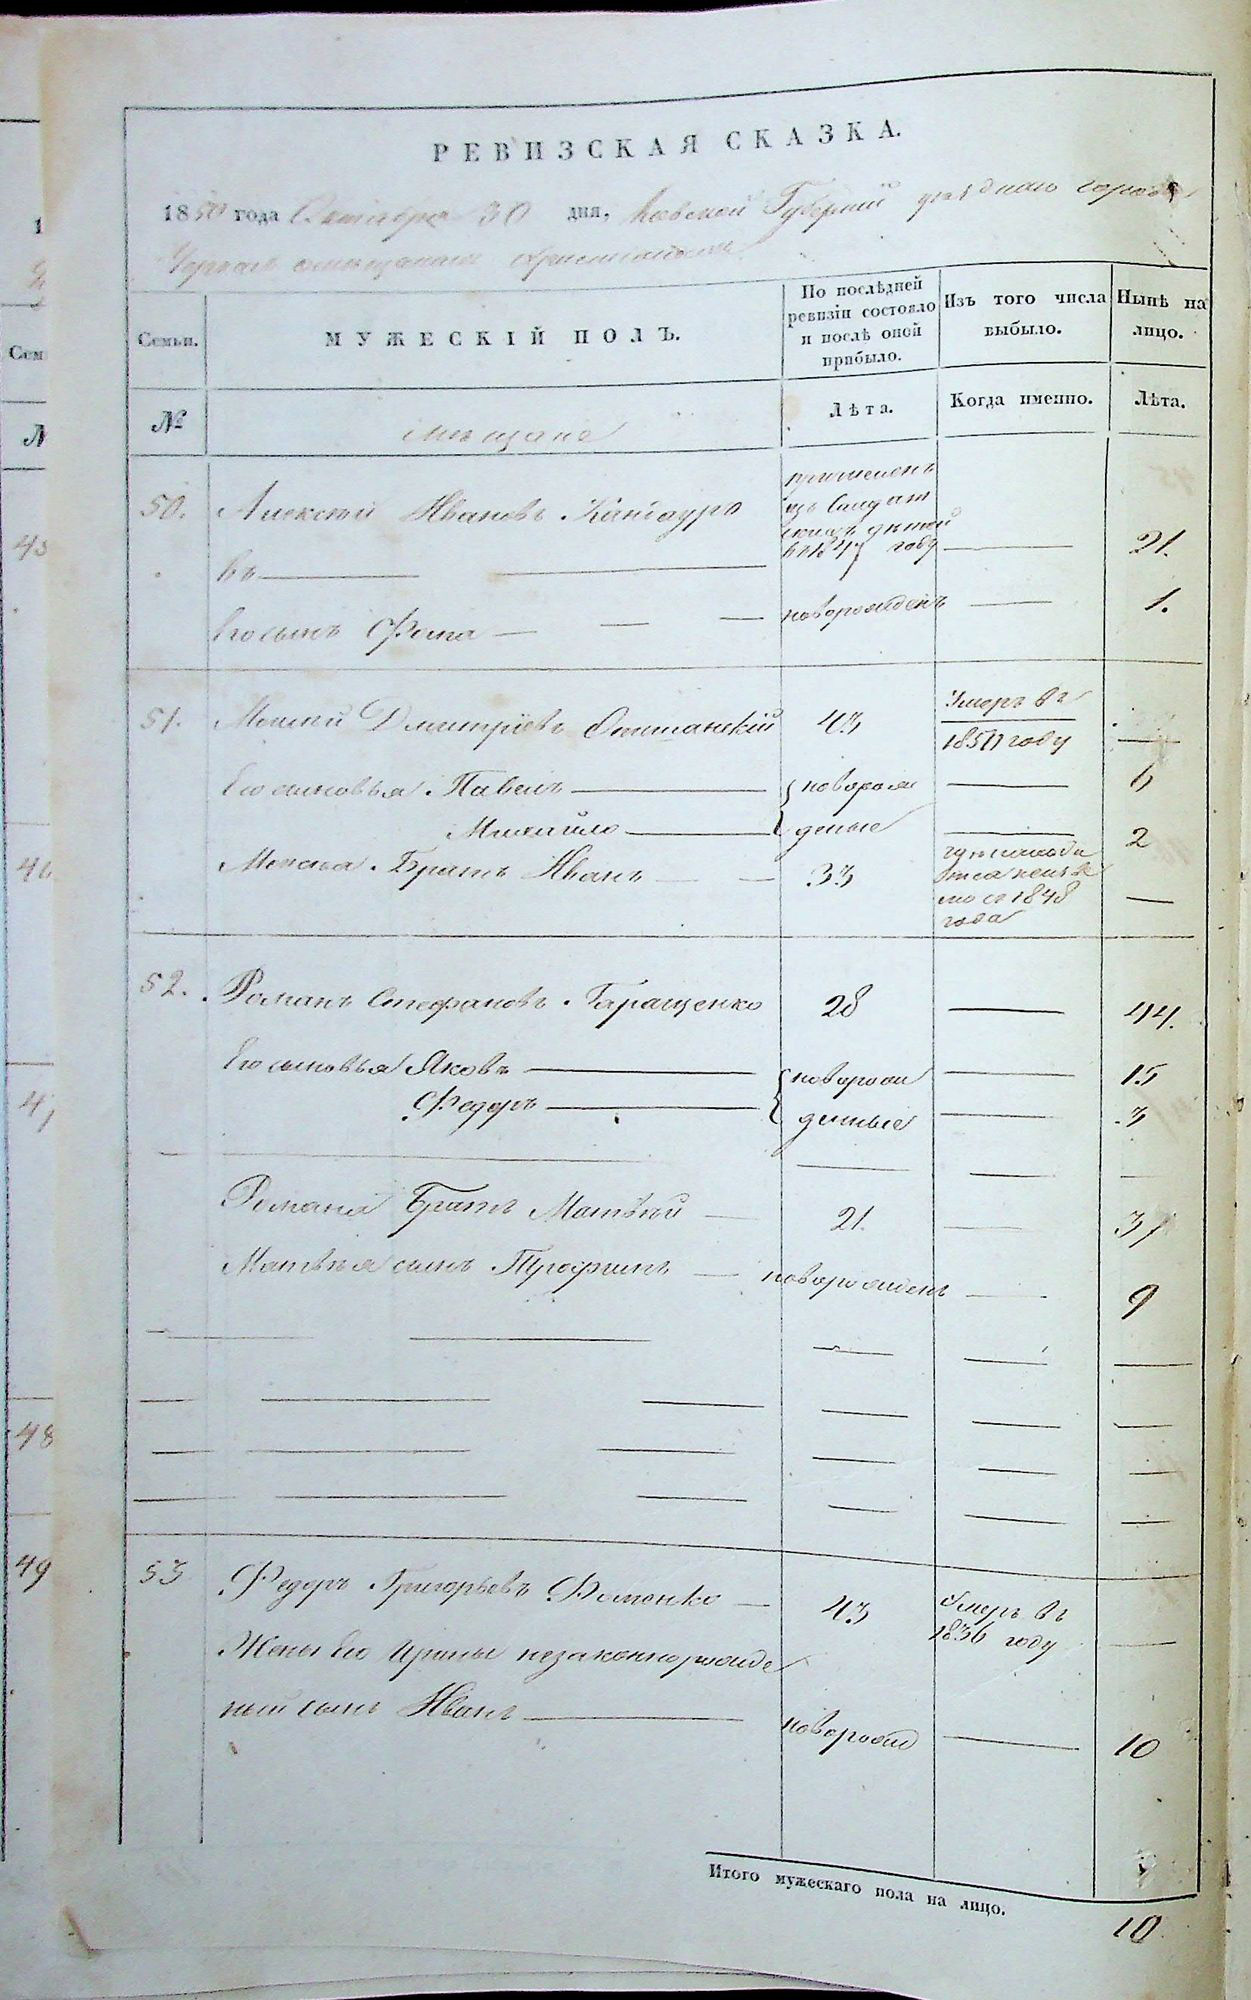 РЕВИЗСКАЯ СКАЗКА.
1850 года Октября 30 дня, Киевской Губернии уезднаго города
Черкас о мещанах христианах
Семьи.
МУЖЕСКІЙ ПОЛЪ.
По послѣдней ревизіи состояло и послѣ оной прибыло.
Изъ того числа выбыло.
Нынѣ на лицо.
№
мещане
Лѣта.
Когда именно.
Лѣта.
50. Алексѣй Ивановъ причисленъ изъ Салдатскихъ дѣтей въ 1847 году 21.
Его сынъ Фома новорожденъ 1.
51. Дмитріевъ 43 Умеръ въ 1850 году
Его сыновья Павелъ новорож 6
Михайло деные 2
Братъ Иванъ 33 1848 года
52. Романъ Стефановъ Геращенко 28 44.
Его сыновья Яковъ новорож 15
Федоръ денные 3
Романа Братъ Матвѣй 21. 37
Матвѣя сынъ Трофимъ новорожденъ 9
53 Федоръ Григорьевъ Фоменко 43 Умеръ въ 1836 году
Жены его Ирины незаконнорожде
ный сынъ Иванъ новорожд 10
Итого мужескаго пола на лицо.
10
Сем
№
45
46
47
48
49